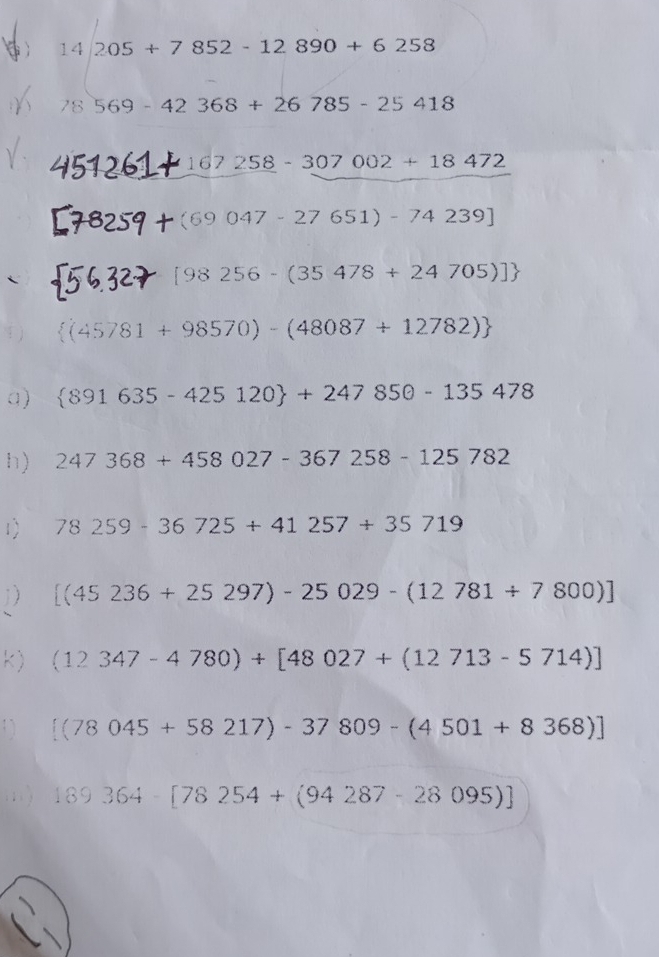 14 205 + 7 852 - 12 890 + 6 258
78 569 - 42 368 + 26 785 - 25 418
451261+ 167 258 - 307 002 + 18 472
[78259 + (69 047 - 27 651) - 74 239]
{56.327 [98 256 - (35 478 + 24 705)]}
f) {(45781 + 98570) - (48087 + 12782)}
g) {891 635 - 425 120} + 247 850 - 135 478
h) 247 368 + 458 027 - 367 258 - 125 782
i) 78 259 - 36 725 + 41 257 + 35 719
j) [(45 236 + 25 297) - 25 029 - (12 781 + 7 800)]
k) (12 347 - 4 780) + [48 027 + (12 713 - 5 714)]
l) [(78 045 + 58 217) - 37 809 - (4 501 + 8 368)]
m) 189 364 - [78 254 + (94 287 - 28 095)]